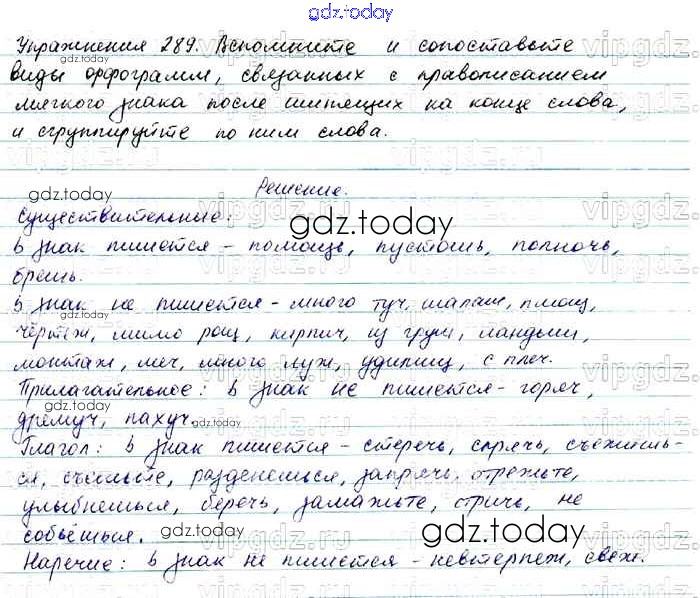 gdz.today
Упражнения 289. Вспомните и сопоставьте
виды орфограмм, связанных с правописанием
мягкого знака после шипящих на конце слова,
и сгруппируйте по ним слова.
Решение.
gdz.today
Существительные:
gdz.today
ь знак пишется – помощь, пустошь, полночь,
брешь.
ь знак не пишется – много туч, шалаш, плющ,
чертёж, мимо рощ, кирпич, из груш, ландыш,
монтаж, меч, много луж, удилищ, с плеч.
Прилагательное: ь знак не пишется – горяч,
gdz.today
дремуч, пахуч.
gdz.today
Глагол: ь знак пишется – стеречь, спрячь, съежишь-
ся, съешьте, разденешься, запрячь, отрежьте,
улыбнешься, беречь, замажьте, стричь, не
собьёшься.
gdz.today
gdz.today
Наречие: ь знак не пишется – невтерпеж, свеж.
vipgdz.ru